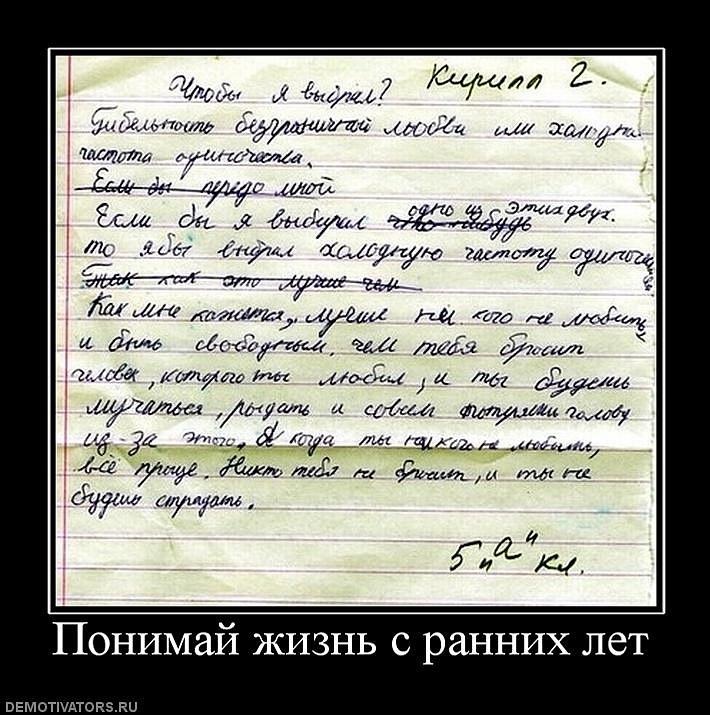 Кирилл 2.
Чтобы я выбрал?
Гибельность безграничной любви или холодная
частота одиночества.
Если бы передо мной
Если бы я выбирал что-нибудь одно из этих двух.
то ябы выбрал холодную частоту одиночества
Так как это лучше чем
Как мне кажется, лучше ни кого не любить,
и быть свободным, чем тебя бросит
человек, которого ты любил, и ты будешь
мучаться, рыдать и совсем потеряеш голову
из-за этого. А когда ты ни кого не любишь,
всё проще. Никто тебя не бросит, и ты не
будешь страдать.
5 "а" кл.
Понимай жизнь с ранних лет
DEMOTIVATORS.RU